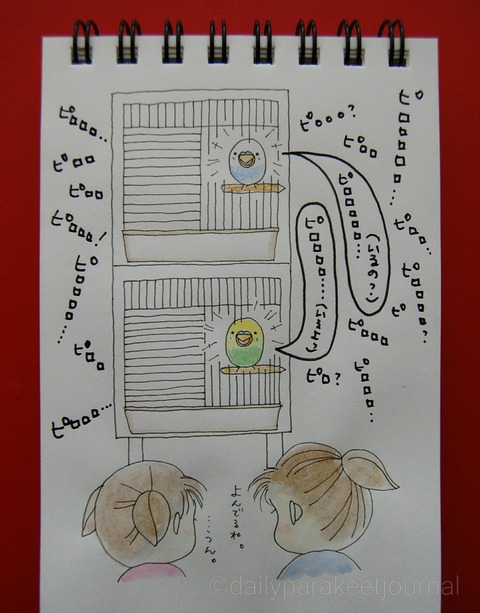 ピロロロ..
ピロロ
ピロロ
ピロロロ!
ピロロロロロ.....
ピロロ
ピロロロロ...
ピロロロ?
ピロロ
ピロロロロロ...
ピロロ..
ピロロロロロ?
ピロロロ
ピロ?
ピロロロロ...
ピロロロロロ...
(いるの?)
ピロロロロ....
(ここよ)
よんでるね。
……うん。
©dailyparakeetjournal